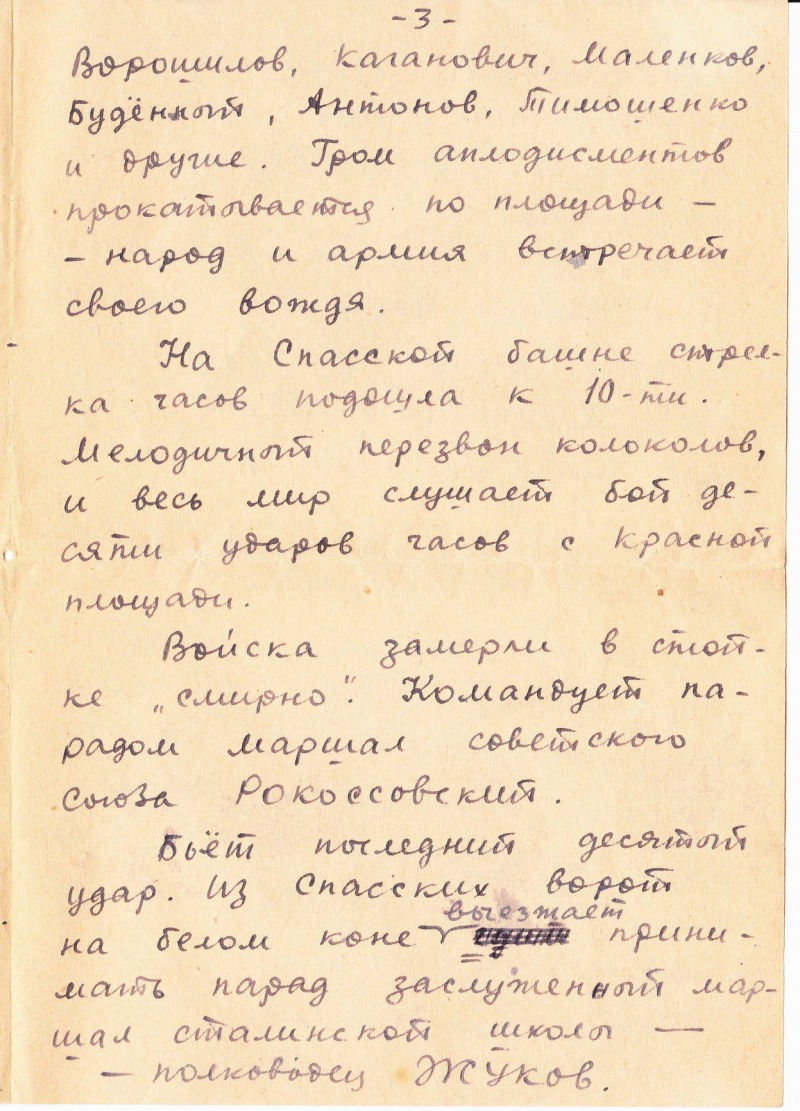 -3-
Ворошилов, Каганович, Маленков,
Будённый, Антонов, Тимошенко
и другие. Гром аплодисментов
прокатывается по площади -
- народ и армия встречает
своего вождя.
На Спасской башне стрел-
ка часов подошла к 10-ти.
Мелодичный перезвон колоколов,
и весь мир слушает бой де-
сяти ударов часов с Красной
площади.
Войска замерли в стой-
ке „смирно". Командует па-
радом маршал советского
союза Рокоссовский.
Бьёт последний десятый
удар. Из Спасских ворот
выезжает
на белом коне прини-
мать парад заслуженный мар-
шал сталинской школы —
- полководец Жуков.